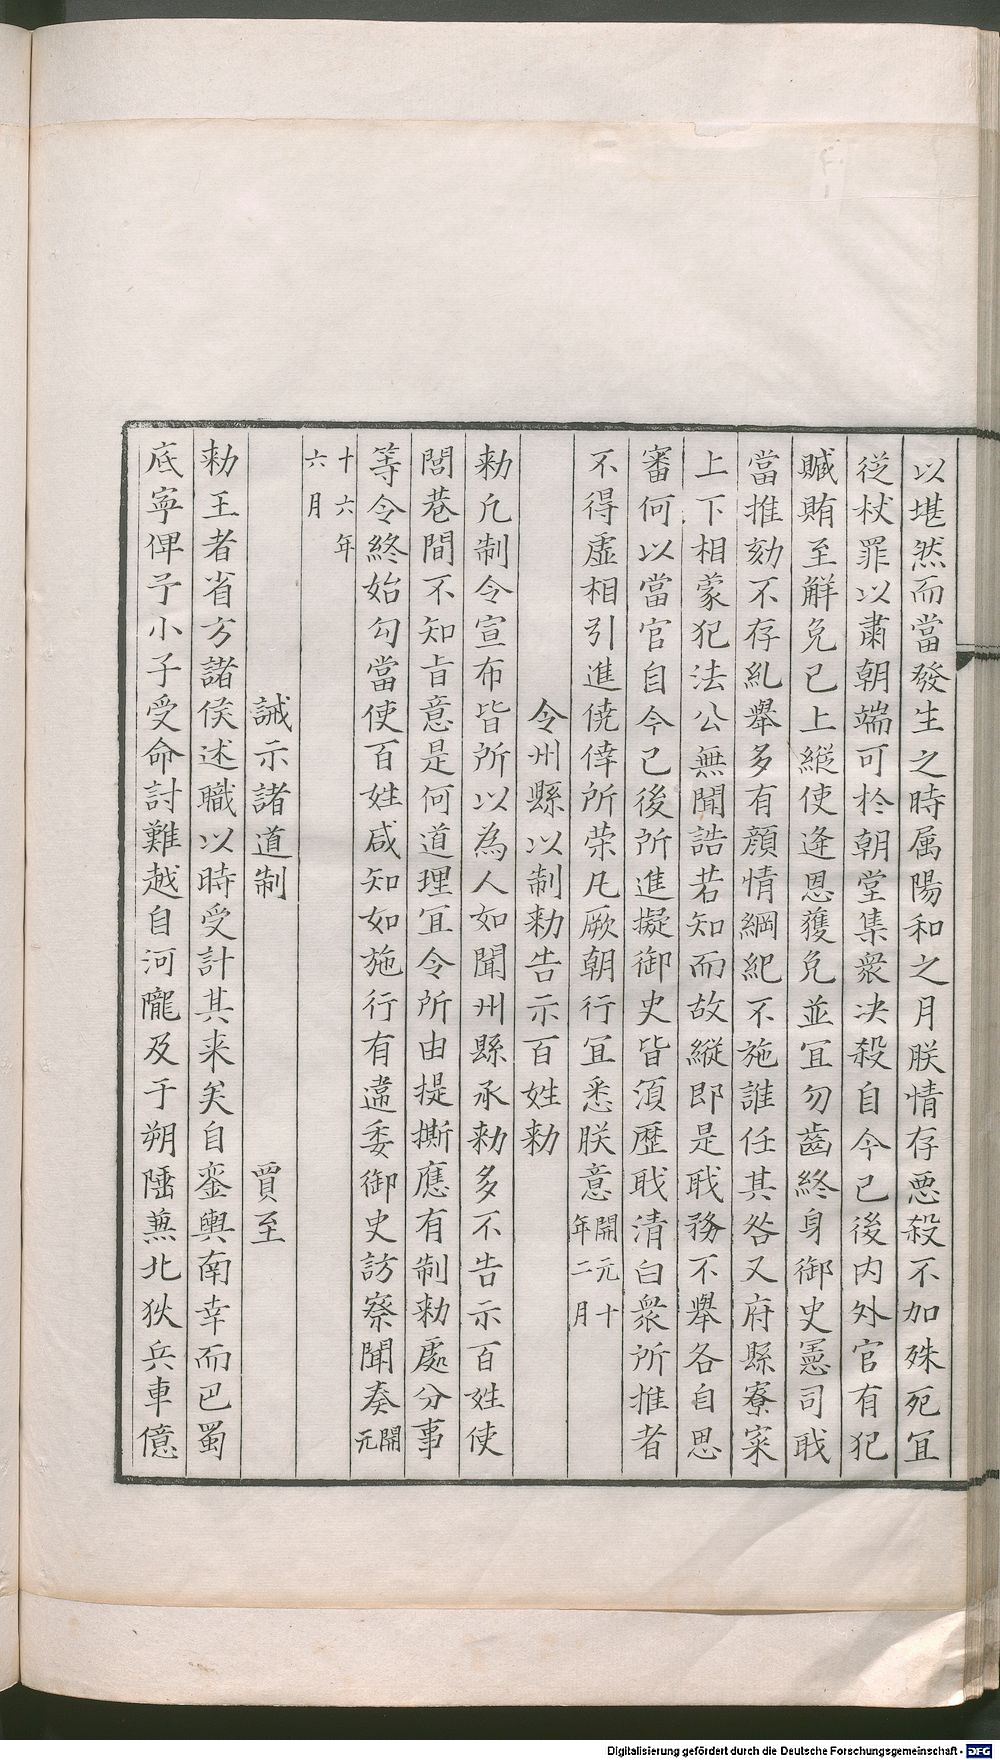 以堪然而當發生之時属陽和之月朕情存惡殺不加殊死冝
從杖罪以肅朝端可於朝堂集衆决殺自今已後内外官有犯
贓賄至解免已上縱使逄恩獲免並冝勿齒終身御史憲司戢
當推劾不存糺舉多有顔情綱紀不施誰任其咎又府縣寮寀
上下相蒙犯法公無聞誥若知而故縱即是戢務不舉各自思
審何以當官自今已後所進擬御史皆須歷戢清白衆所推者
不得虛相引進僥倖所荣凡厥朝行冝悉朕意開元十年二月
令州縣以制勑告示百姓勑
勑凡制令宣布皆所以為人如聞州縣承勑多不告示百姓使
閭巷間不知旨意是何道理冝令所由提撕應有制勑處分事
等令終始勾當使百姓咸知如施行有違委御史訪察聞奏開元
十六年六月
誡示諸道制 賈至
勑王者省方諸侯述職以時受計其来矣自鑾輿南幸而巴蜀
底寜俾予小子受命討難越自河隴及于朔陲蕪北狄兵車億
Digitalisierung gefördert durch die Deutsche Forschungsgemeinschaft - DFG